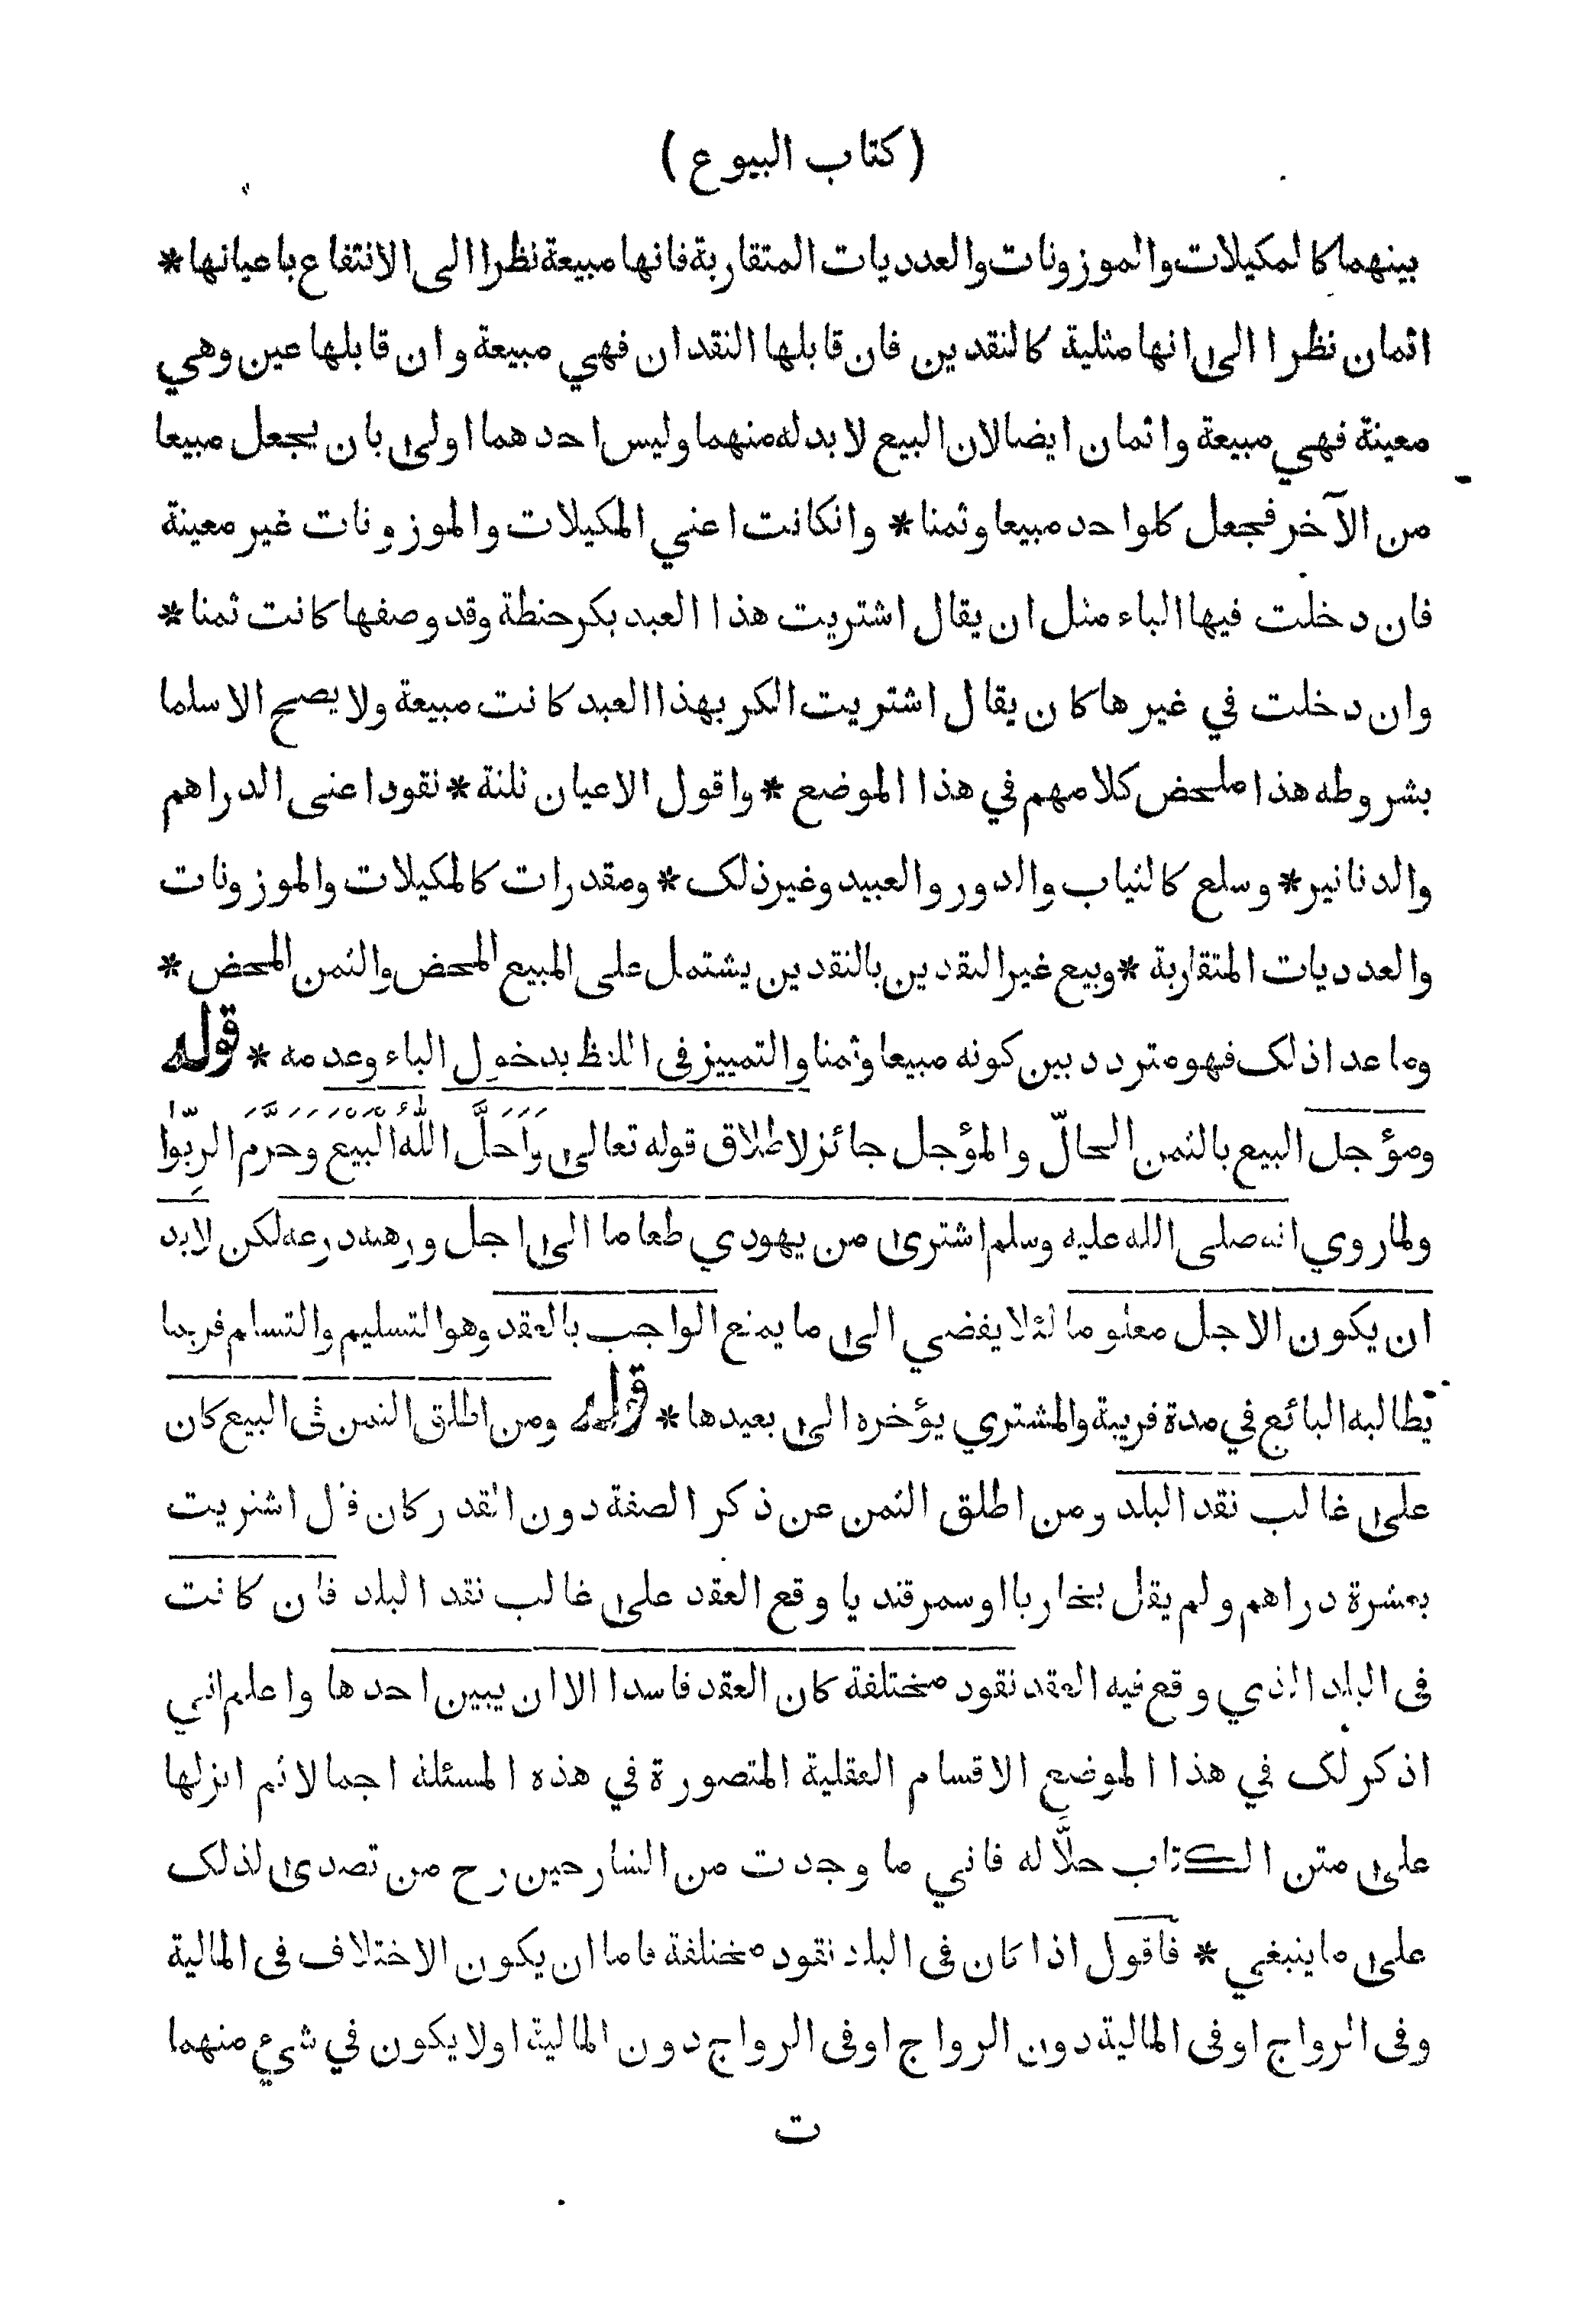 ( كتاب البيوع )
بينهما كالمكيلات والموزونات والعدديات المتقاربة فانها مبيعة نظرا الى الانتفاع باعيانها *
اثمان نظرا الى انها مثلية كالنقدين فان قابلها النقدان فهي مبيعة وان قابلها عين وهي
معينة فهي مبيعة واثمان ايضا لان البيع لا بد له منهما وليس احدهما اولى بان يجعل مبيعا
من الآخر فجعل كلواحد مبيعا وثمنا * وانكانت اعني المكيلات والموزونات غير معينة
فان دخلت فيها الباء مثل ان يقال اشتريت هذا العبد بكر حنطة وقد وصفها كانت ثمنا *
وان دخلت في غيرها كان يقال اشتريت الكر بهذا العبد كانت مبيعة ولا يصح الا سلما
بشروطه هذا ملخص كلامهم في هذا الموضع * واقول الاعيان ثلثة * نقود اعنى الدراهم
والدنانير * وسلع كالثياب والدور والعبيد وغير ذلك * ومقدرات كالمكيلات والموزونات
والعدديات المتقاربة * وبيع غير النقدين بالنقدين يشتمل على المبيع المحض والثمن المحض *
وما عدا ذلك فهو متردد بين كونه مبيعا وثمنا والتمييز فى اللفظ بدخول الباء وعدمه * قوله
ومؤجل البيع بالثمن الحالّ والمؤجل جائز لاطلاق قوله تعالى وَاَحَلَّ اللّٰهُ الْبَيْعَ وَحَرَّمَ الرِّبٰوا
ولما روي انه صلى الله عليه وسلم اشترى من يهودي طعاما الى اجل ورهنه درعه لكن لا بد
ان يكون الاجل معلوما لئلا يفضي الى ما يمنع الواجب بالعقد وهو التسليم والتسلم فربما
يطالبه البائع في مدة قريبة والمشتري يؤخره الى بعيدها * قوله ومن اطلق الثمن فى البيع كان
على غالب نقد البلد ومن اطلق الثمن عن ذكر الصفة دون القدر كان قال اشتريت
بعشرة دراهم ولم يقل بخاريا او سمرقنديا وقع العقد على غالب نقد البلد فان كانت
فى البلد الذي وقع فيه العقد نقود مختلفة كان العقد فاسدا الا ان يبين احدها واعلم اني
اذكر لك في هذا الموضع الاقسام العقلية المتصورة في هذه المسئلة اجمالا ثم انزلها
على متن الكتاب حلّاً له فاني ما وجدت من الشارحين رح من تصدى لذلك
على ما ينبغي * فاقول اذا كان فى البلد نقود مختلفة فاما ان يكون الاختلاف فى المالية
وفى الرواج او فى المالية دون الرواج او فى الرواج دون المالية اولا يكون في شيء منهما
ت